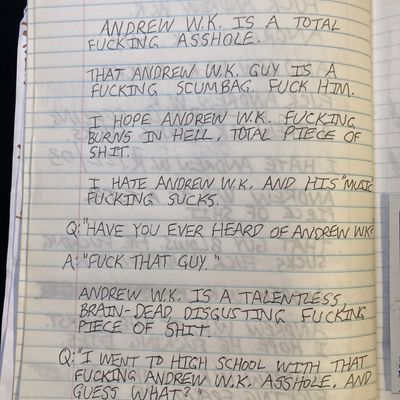 ANDREW W.K. IS A TOTAL
FUCKING ASSHOLE.
THAT ANDREW W.K. GUY IS A
FUCKING SCUMBAG. FUCK HIM.
I HOPE ANDREW W.K. FUCKING
BURNS IN HELL, TOTAL PIECE OF
SHIT.
I HATE ANDREW W.K. AND HIS "MUSIC"
FUCKING SUCKS.
Q: "HAVE YOU EVER HEARD OF ANDREW WK?
A: "FUCK THAT GUY."
ANDREW W.K. IS A TALENTLESS,
BRAIN-DEAD, DISGUSTING FUCKING
PIECE OF SHIT.
Q: "I WENT TO HIGH SCHOOL WITH THAT
FUCKING ANDREW W.K. ASSHOLE, AND
GUESS WHAT?"